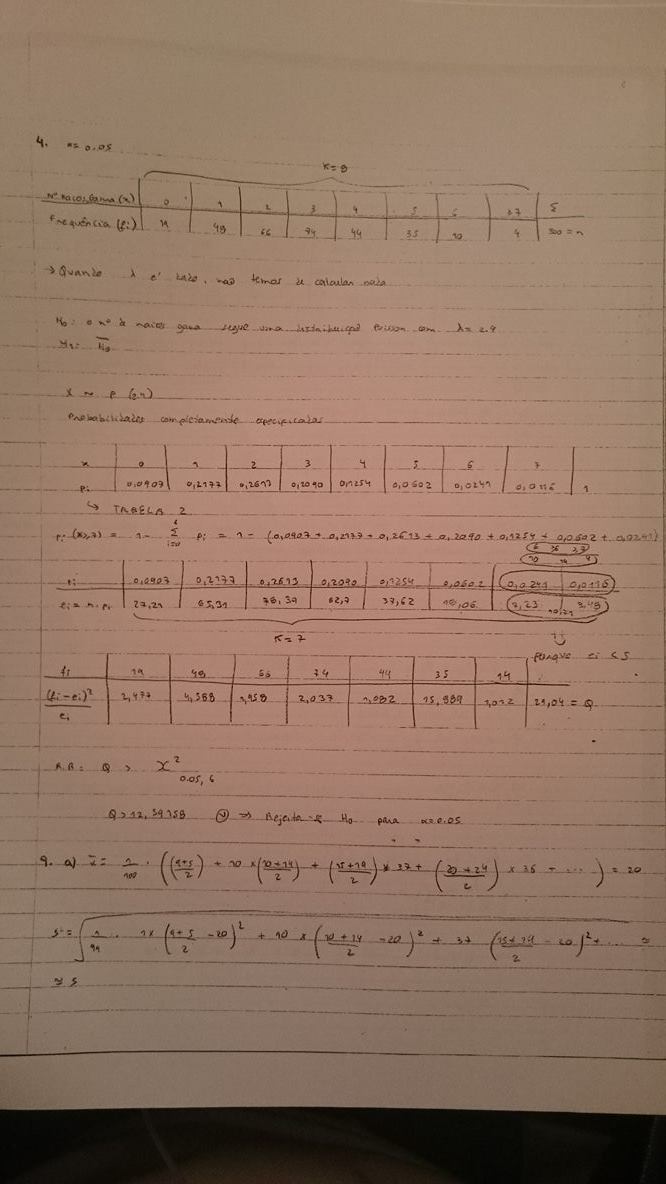 4. α = 0.05
K = 8
Nº raios gama (x) 0 1 2 3 4 5 6 ≥7 Σ
Frequência (fi) 19 48 66 74 44 35 10 4 300 = n
→ Quando λ é dado, não temos de calcular nada
H₀: o nº de raios gama segue uma distribuição Poisson com λ = 2.4
H₁: H̅₀
X ~ P (2,4)
Probabilidades completamente especificadas
x 0 1 2 3 4 5 6 7
pi 0,0907 0,2177 0,2613 0,2090 0,1254 0,0602 0,0241 0,0116 1
↳ TABELA 2
pi (x≥7) = 1 - Σ pi = 1 - (0,0907 + 0,2177 + 0,2613 + 0,2090 + 0,1254 + 0,0602 + 0,0241)
pi 0,0907 0,2177 0,2613 0,2090 0,1254 0,0602 0,0241 0,0116
ei = n.pi 27,21 65,31 78,39 62,7 37,62 18,06 7,23 3,48
10,71
K = 7
porque ei < 5
fi 19 48 66 74 44 35 14
(fi - ei)² / ei 2,477 4,588 1,958 2,037 1,082 15,889 1,012 29,04 = Q
R.B.: Q > χ² 0.05, 6
Q > 12,59158 Ⓥ ⇒ Rejeita-se H₀ para α = 0.05
9. a) x̄ = 1/100 · ((4+5/2) + 10 × (10+14/2) + (15+19/2) × 37 + (20+24/2) × 36 + ....) = 20
s = √ 1/99 · 1 × (4+5/2 - 20)² + 10 × (10+14/2 - 20)² + 37 (15+19/2 - 20)² + ... ≈
≈ 5